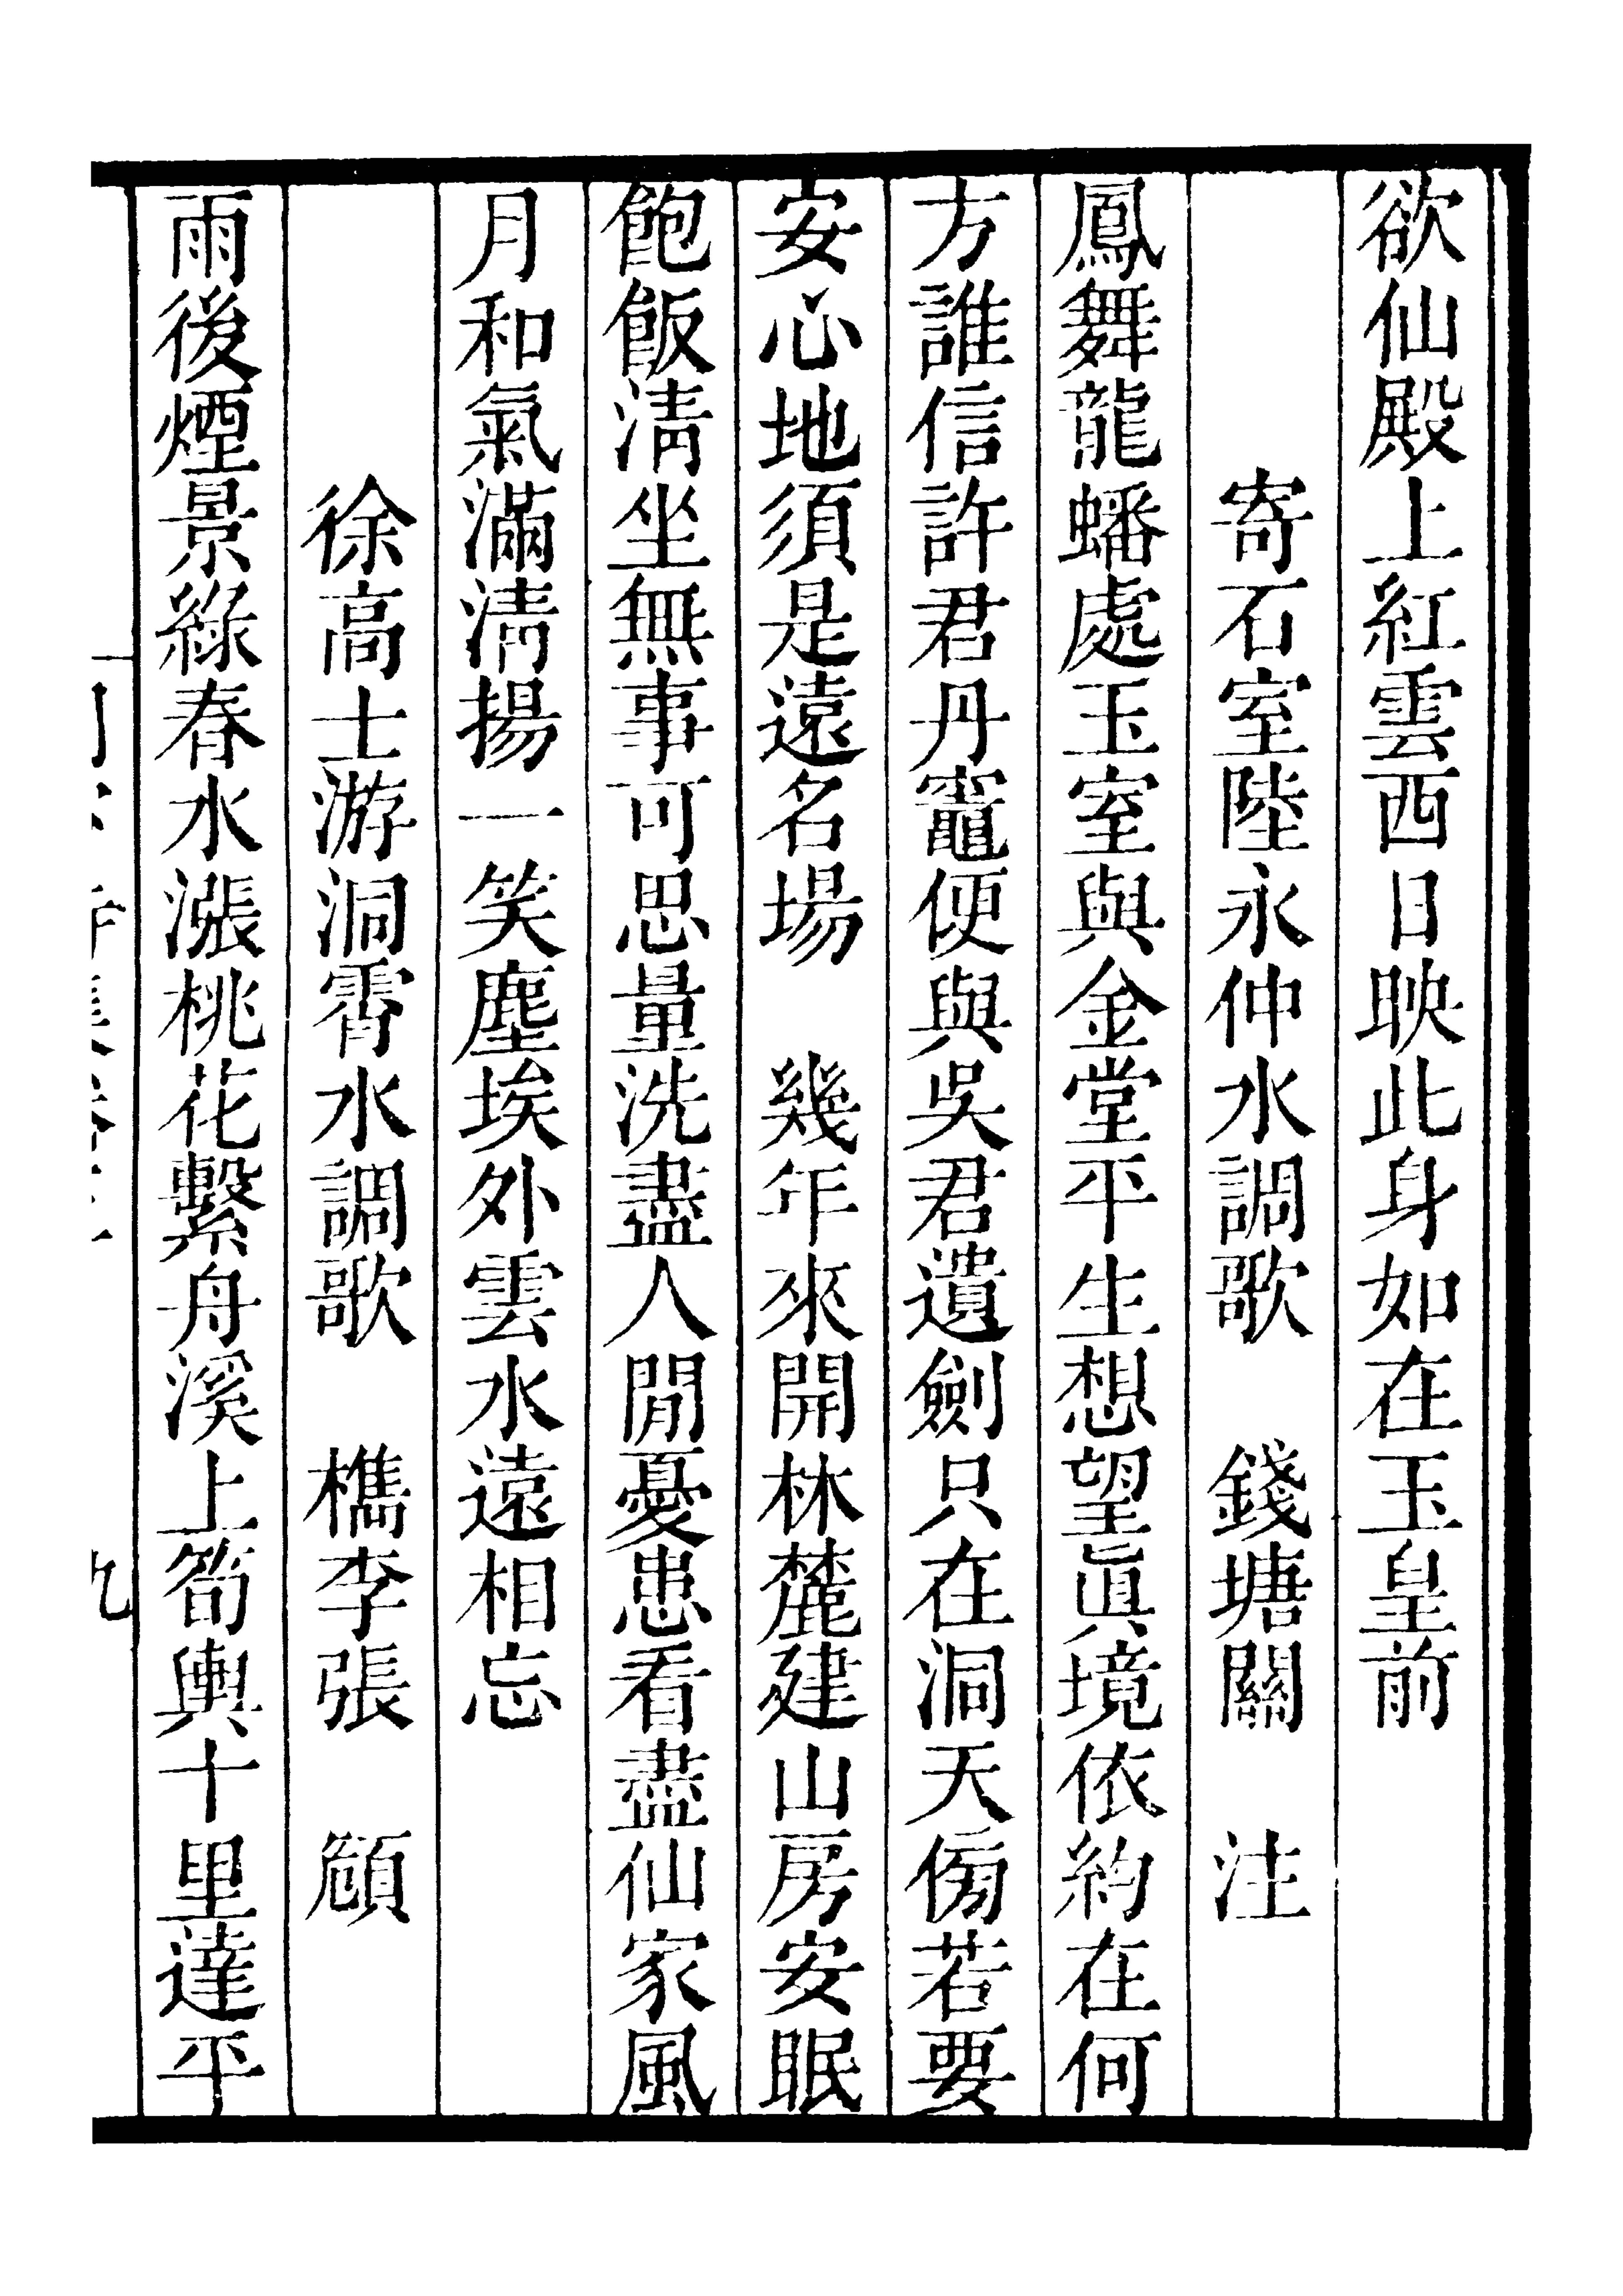 欲仙殿上紅雲西日映此身如在玉皇前
寄石室陸永仲水調歌　錢塘關　注
鳳舞龍蟠處玉室與金堂平生想望眞境依約在何
方誰信許君丹竈便與吳君遺劍只在洞天傍若要
安心地須是遠名場　幾年來開林麓建山房安眠
飽飯淸坐無事可思量洗盡人閒憂患看盡仙家風
月和氣滿淸揚一笑塵埃外雲水遠相忘
徐高士游洞霄水調歌　檇李張　頠
雨後煙景綠春水漲桃花繫舟溪上筍輿十里達平